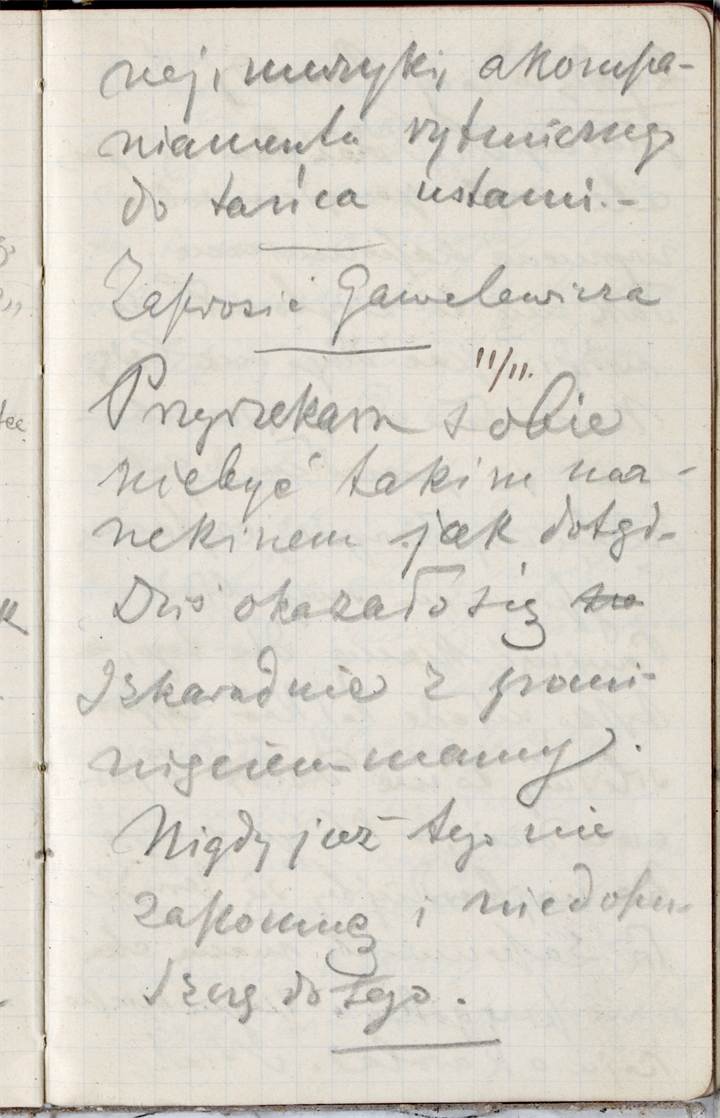 nej, muzyki, akompa-
niamentu rytmicznego
do tańca ustami.-
Zaprosić Gawelewicza
11/11.
Przyrzekam sobie
niebyć takim mar-
nekinem jak dotąd-
Dziś okazało się to
Szkaradnie z pomi-
nięciem mamy.
Nigdy już tego nie
zapomnę i niedopu-
szczę do tego.